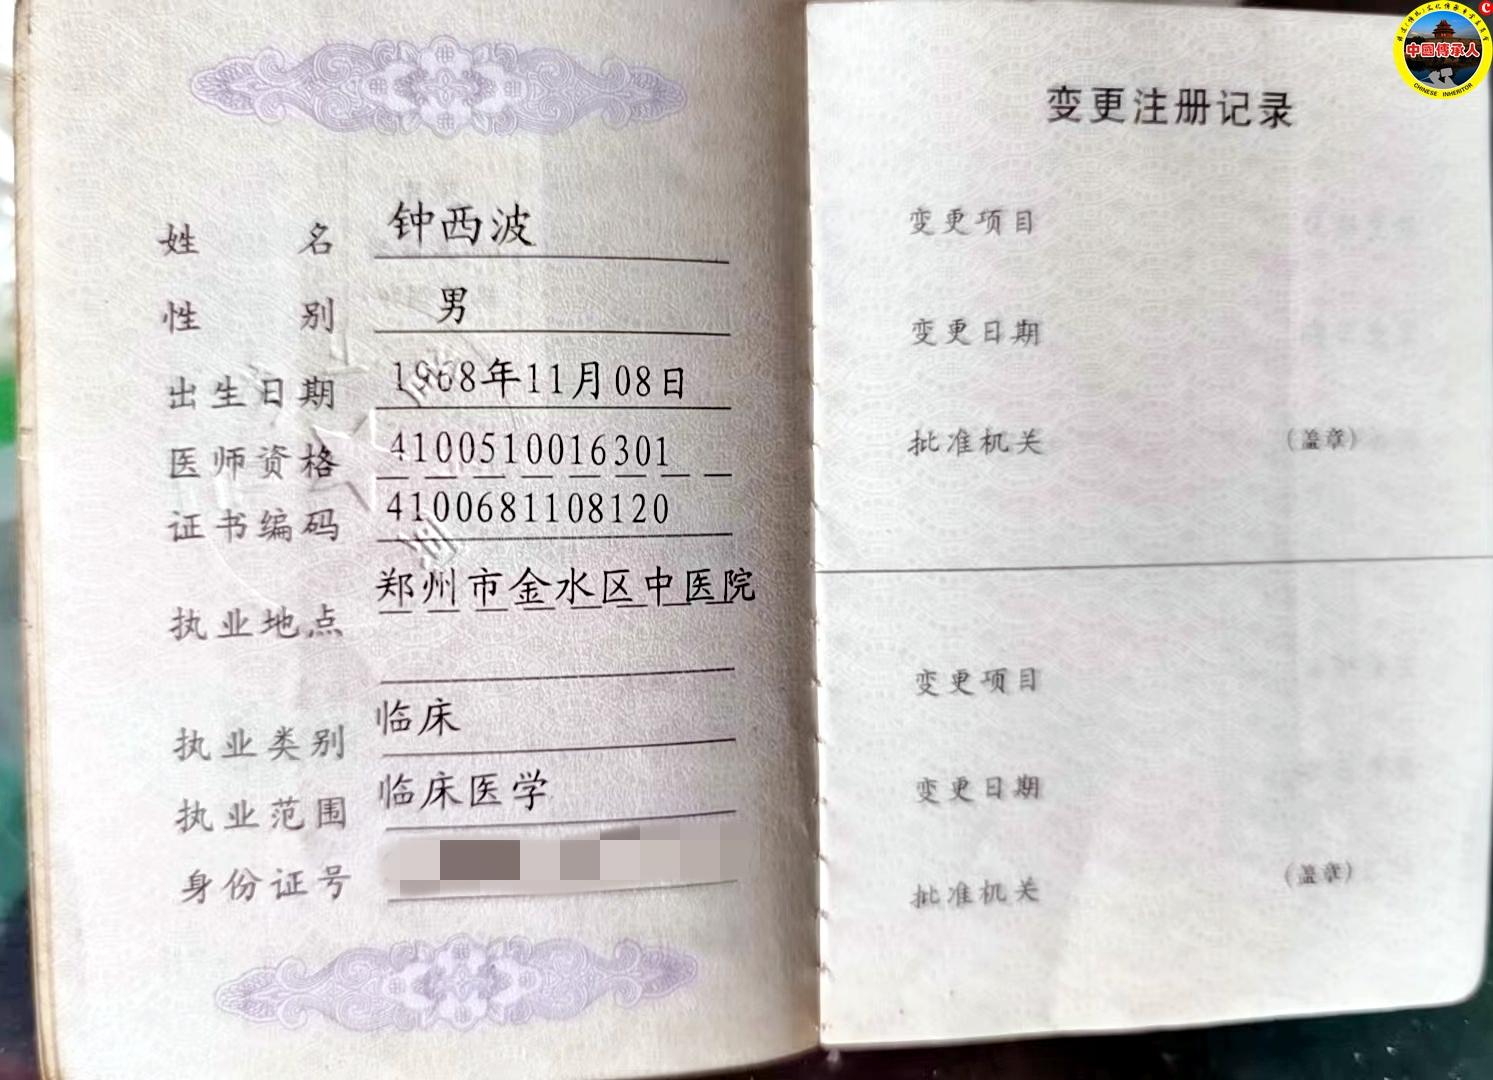 姓名 钟西波
性别 男
出生日期 1968年11月08日
医师资格 4100510016301
证书编码 4100681108120
执业地点 郑州市金水区中医院
执业类别 临床
执业范围 临床医学
身份证号
变更注册记录
变更项目
变更日期
批准机关 (盖章)
变更项目
变更日期
批准机关 (盖章)
中國傳承人
CHINESE INHERITOR
C